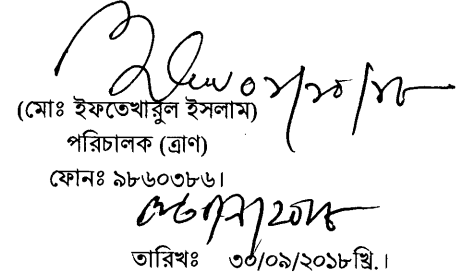 (মোঃ ইফতেখারুল ইসলাম)
পরিচালক (ত্রাণ)
ফোনঃ ৯৮৬০৩৮৬।
তারিখঃ ৩০/০৯/২০১৮খ্রি.।